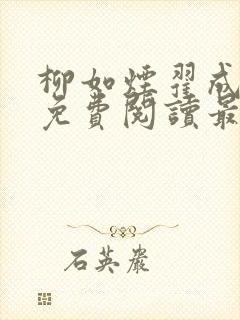 柳如煙翟戒
免費閱讀最
石英嚴